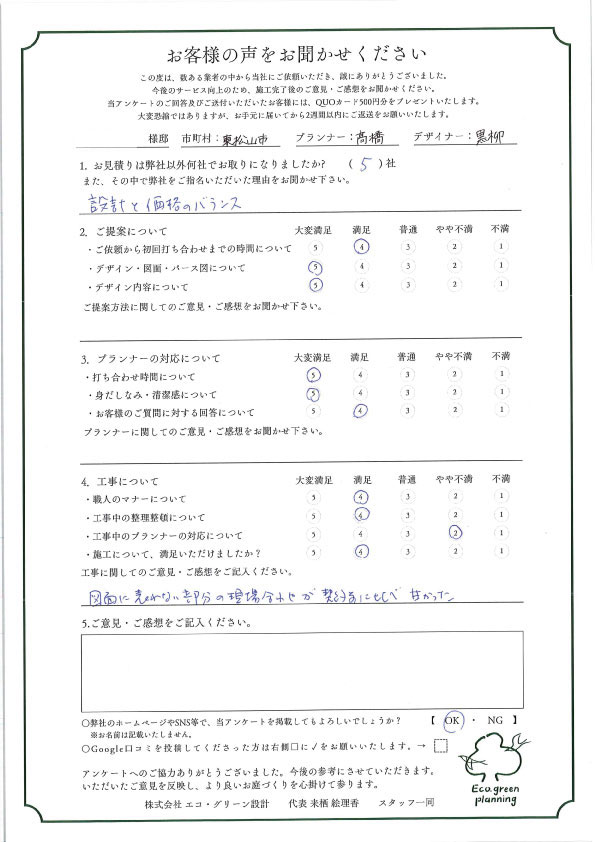 お客様の声をお聞かせください
この度は、数ある業者の中から当社にご依頼いただき、誠にありがとうございました。
今後のサービス向上のため、施工完了後のご意見・ご感想をお聞かせください。
当アンケートのご回答及びご送付いただいたお客様には、QUOカード500円分をプレゼントいたします。
大変恐縮ではありますが、お手元に届いてから2週間以内にご返送をお願いいたします。
様邸 市町村：東松山市 プランナー：髙橋 デザイナー：黒柳
1. お見積りは弊社以外何社でお取りになりましたか? （ 5 ）社
また、その中で弊社をご指名いただいた理由をお聞かせ下さい。
設計と価格のバランス
2. ご提案について 大変満足 満足 普通 やや不満 不満
・ご依頼から初回打ち合わせまでの時間について 5 4 3 2 1
・デザイン・図面・パース図について 5 4 3 2 1
・デザイン内容について 5 4 3 2 1
ご提案方法に関してのご意見・ご感想をお聞かせ下さい。
3. プランナーの対応について 大変満足 満足 普通 やや不満 不満
・打ち合わせ時間について 5 4 3 2 1
・身だしなみ・清潔感について 5 4 3 2 1
・お客様のご質問に対する回答について 5 4 3 2 1
プランナーに関してのご意見・ご感想をお聞かせ下さい。
4. 工事について 大変満足 満足 普通 やや不満 不満
・職人のマナーについて 5 4 3 2 1
・工事中の整理整頓について 5 4 3 2 1
・工事中のプランナーの対応について 5 4 3 2 1
・施工について、満足いただけましたか？ 5 4 3 2 1
工事に関してのご意見・ご感想をご記入ください。
図面に表れない部分の現場合わせが契約前に比べ甘かった
5.ご意見・ご感想をご記入ください。
〇弊社のホームページやSNS等で、当アンケートを掲載してもよろしいでしょうか？ 【 OK ・ NG 】
※お名前は記載いたしません。
〇Google口コミを投稿してくださった方は右側□に✓をお願いいたします。→
アンケートへのご協力ありがとうございました。今後の参考にさせていただきます。
いただいたご意見を反映し、より良いお庭づくりを心掛けて参ります。
株式会社 エコ・グリーン設計 代表 来栖 絵理香 スタッフ一同
Eco.green
planning